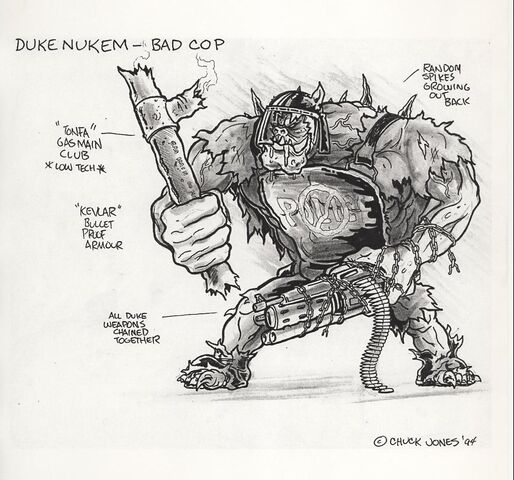 DUKE NUKEM – BAD COP
RANDOM
SPIKES
GROWING
OUT
BACK
"TONFA"
GAS MAIN
CLUB
*LOW TECH*
"KEVLAR"
BULLET
PROOF
ARMOUR
ALL DUKE
WEAPONS
CHAINED
TOGETHER
© CHUCK JONES '94